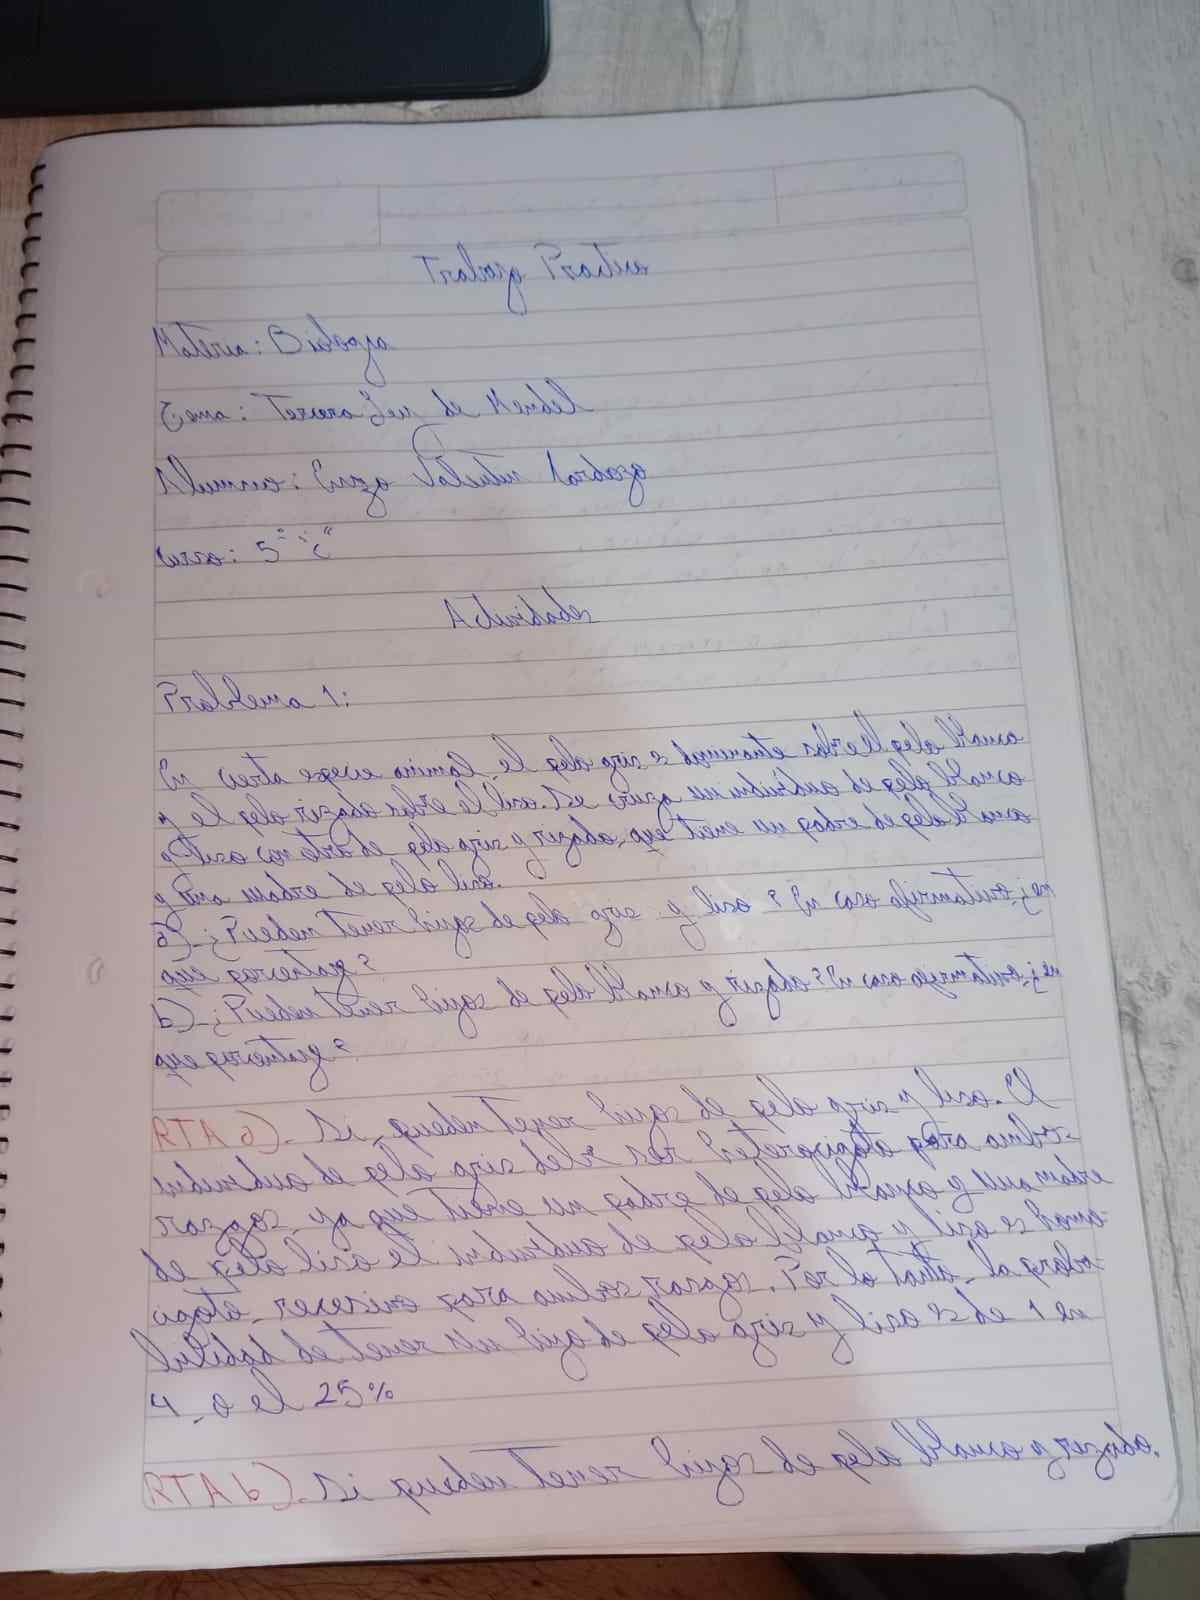 Trabajo Practico
Materia: Biologia
Tema: Tercera Ley de Mendel
Alumno: Valentin
Curso: 5° "C"
Actividades
Problema 1:
En cierta especie animal, el pelo gris es dominante sobre el pelo blanco
y el pelo rizado sobre el liso. Se cruza un individuo de pelo blanco
y liso con otro de pelo gris y rizado, que tiene un padre de pelo blanco
y una madre de pelo liso.
a)-¿Pueden tener hijos de pelo gris y liso? En caso afirmativo, ¿en
que porcentaje?
b)-¿Pueden tener hijos de pelo blanco y rizado? En caso afirmativo, ¿en
que porcentaje?
RTA a)- Si, pueden tener hijos de pelo gris y liso. El
individuo de pelo gris debe ser heterocigoto para ambos
rasgos, ya que tiene un padre de pelo blanco y una madre
de pelo liso. El individuo de pelo blanco y liso es homo-
cigoto recesivo para ambos rasgos. Por lo tanto, la proba-
bilidad de tener un hijo de pelo gris y liso es de 1 en
4, o el 25%
RTA b)- Si pueden tener hijos de pelo blanco y rizado.